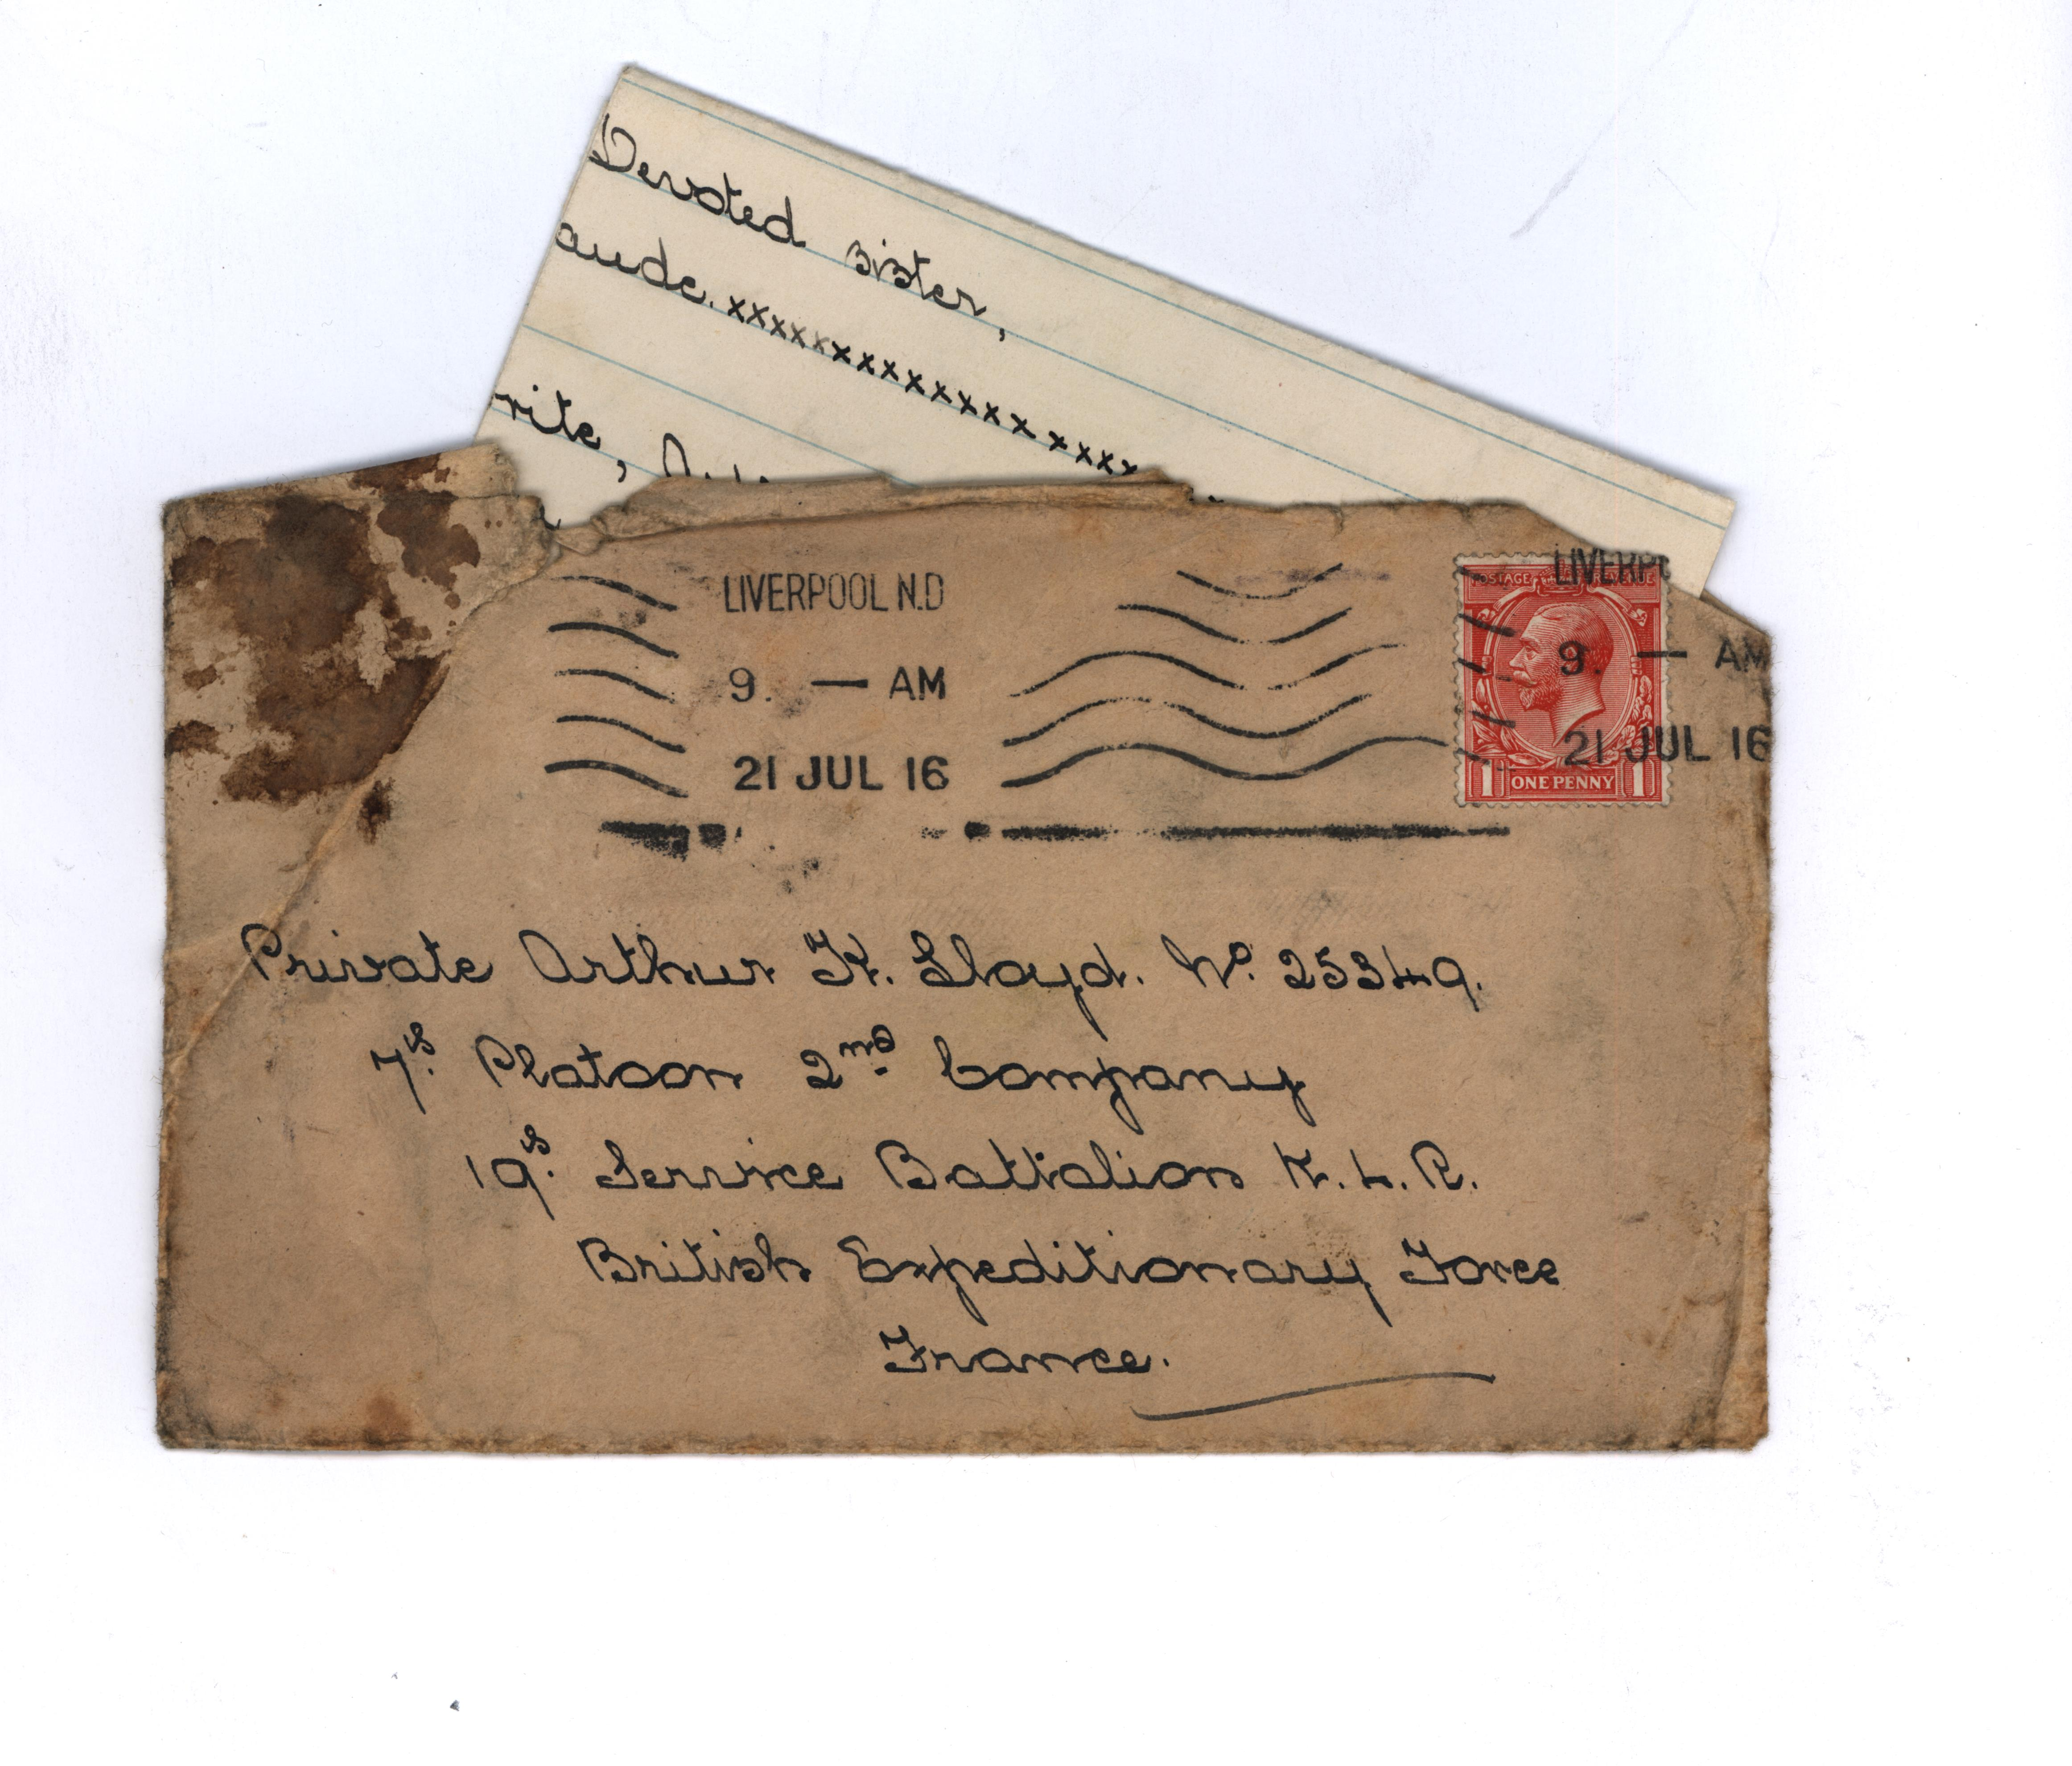 Devoted sister,
aude. xxxxxxxxxxxxxxxxxx
rite,
LIVERPOOL N.D
9. — AM
21 JUL 16
POSTAGE REVENUE
LIVERP
9. — AM
21 JUL 16
1 ONE PENNY 1
Private Arthur K. Lloyd. No. 25349.
7th Platoon 2nd Company
19th Service Battalion K.L.R.
British Expeditionary Force
France.